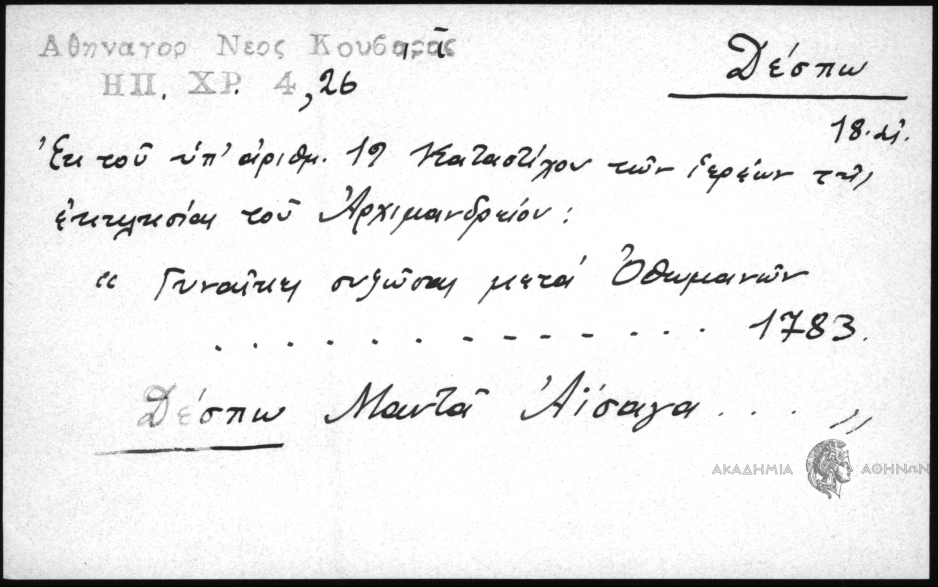 Αθηναγορ Νεος Κουβαρᾶς
ΗΠ. ΧΡ. 4,26
Δέσπω
18. αἰ.
Ἐκ τοῦ ὑπ' ἀριθμ. 19 Καταστίχου τῶν ἱερέων τῆς
ἐκκλησίας τοῦ Ἀρχιμανδρείου:
“ Γυναῖκες συζῶσαι μετά Ὀθωμανῶν
. . . . . . . . . . . . . . 1783.
Δέσπω Μαντᾶ Ἀϊσαγα . . . "
ΑΚΑΔΗΜΙΑ ΑΘΗΝΩΝ